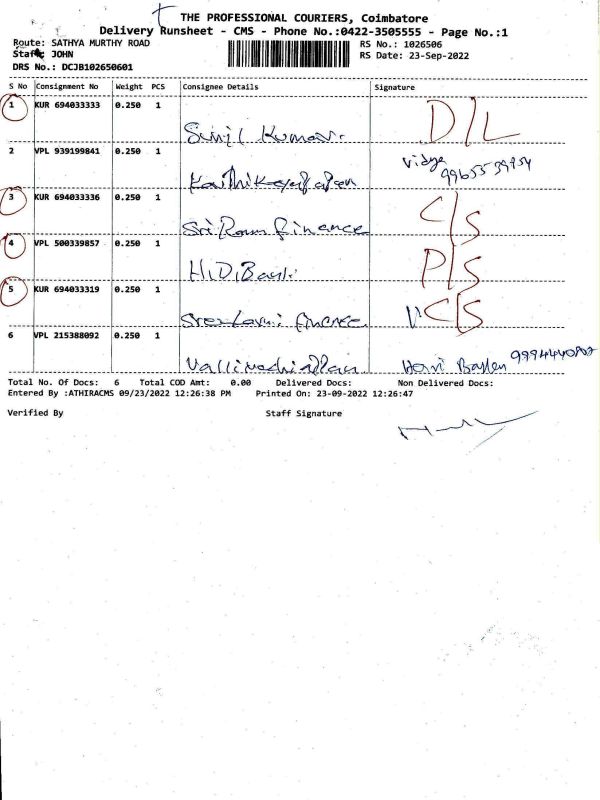 THE PROFESSIONAL COURIERS, Coimbatore
Delivery Runsheet - CMS - Phone No.:0422-3505555 - Page No.:1
Route: SATHYA MURTHY ROAD
RS No.: 1026506
Staff: JOHN
RS Date: 23-Sep-2022
DRS No.: DCJB102650601
S No Consignment No Weight PCS Consignee Details Signature
1 KUR 694033333 0.250 1
Sunil Kumar. D/L
2 VPL 939199841 0.250 1
Vidya
3 KUR 694033336 0.250 1
Sri Ram finance C/S
4 VPL 500339857 0.250 1
P/S
5 KUR 694033319 0.250 1
finance C/S
6 VPL 215388092 0.250 1
Total No. Of Docs: 6 Total COD Amt: 0.00 Delivered Docs: Non Delivered Docs:
Entered By :ATHIRACMS 09/23/2022 12:26:38 PM Printed On: 23-09-2022 12:26:47
Verified By Staff Signature